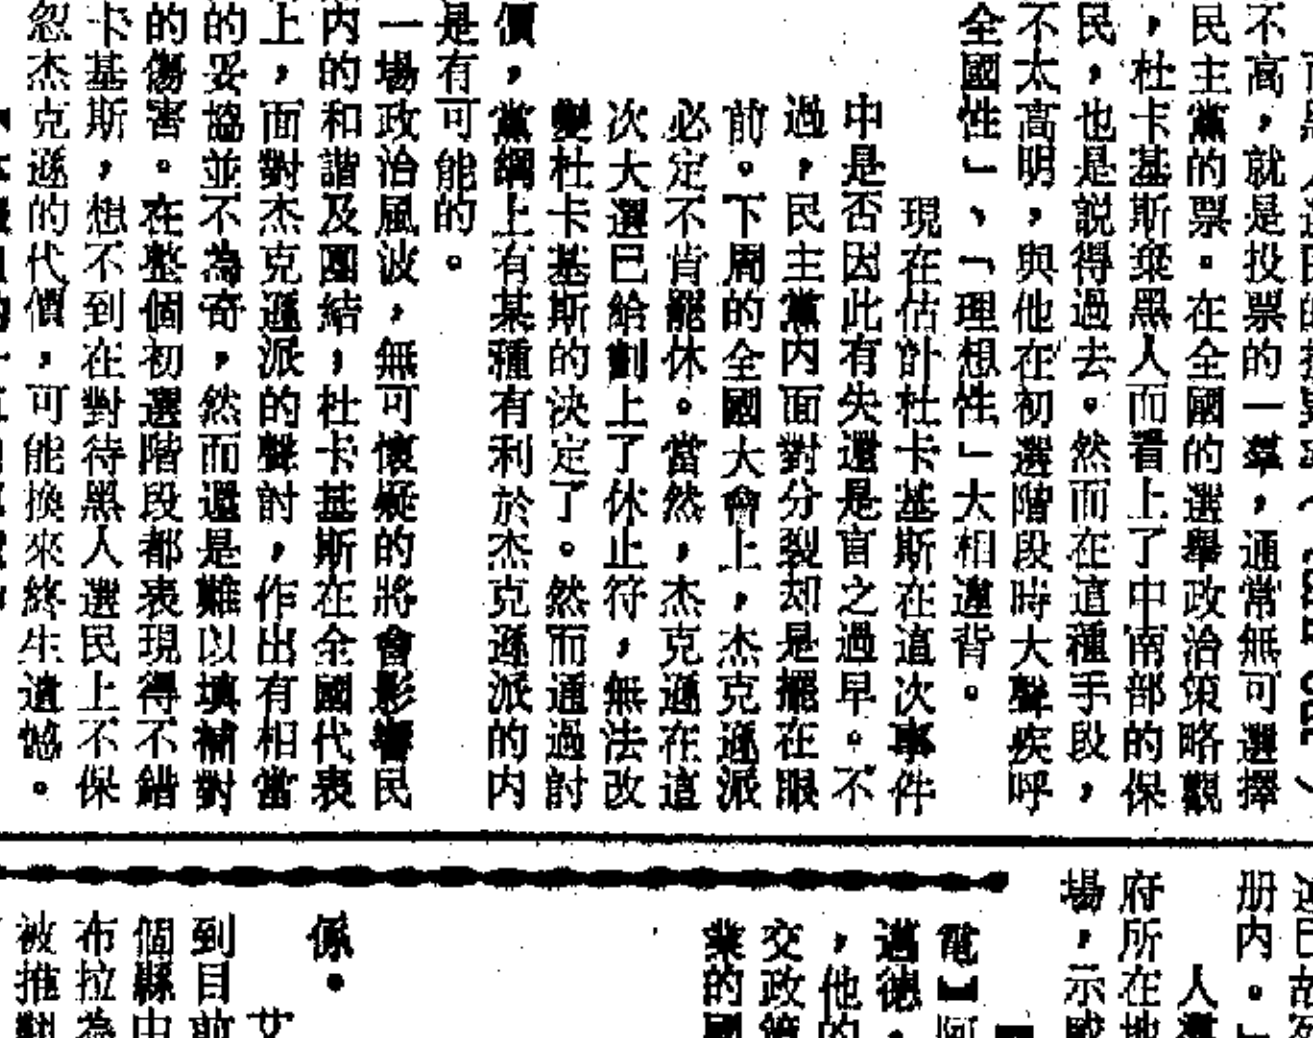 不高，就是投票的一羣，通常無可選擇
民主黨的票。在全國的選舉政治策略觀
，杜卡基斯棄黑人而看上了中南部的保
民，也是説得過去。然而在這種手段，
不太高明，與他在初選階段時大聲疾呼
全國性」、「理想性」大相違背。
現在估計杜卡基斯在這次事件
中是否因此有失還是言之過早。不
過，民主黨内面對分裂却是擺在眼
前。下周的全國大會上，杰克遜派
必定不肯罷休。當然，杰克遜在這
次大選已給劃上了休止符，無法改
變杜卡基斯的決定了。然而通過討
價，黨綱上有某種有利於杰克遜派的内
是有可能的。
一場政治風波，無可懷疑的將會影響民
内的和諧及團結，杜卡基斯在全國代表
上，面對杰克遜派的聲討，作出有相當
的妥協並不為奇，然而還是難以填補對
的傷害。在整個初選階段都表現得不錯
卡基斯，想不到在對待黑人選民上不保
忽杰克遜的代價，可能換來終生遺憾。
册内。」
人
府所在地
場，示威
電】阿
邁德
，他的
交政策
業的國
係。
艾
到目前
個縣中
布拉為
被推翻